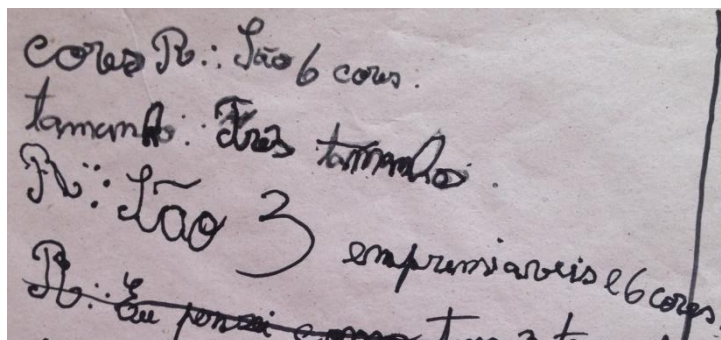 cores R.: São 6 cores.
tamanho: Três tamanhos.
R.: São 3 empremiaveis e 6 cores.
R.: Eu pensei como tem 3